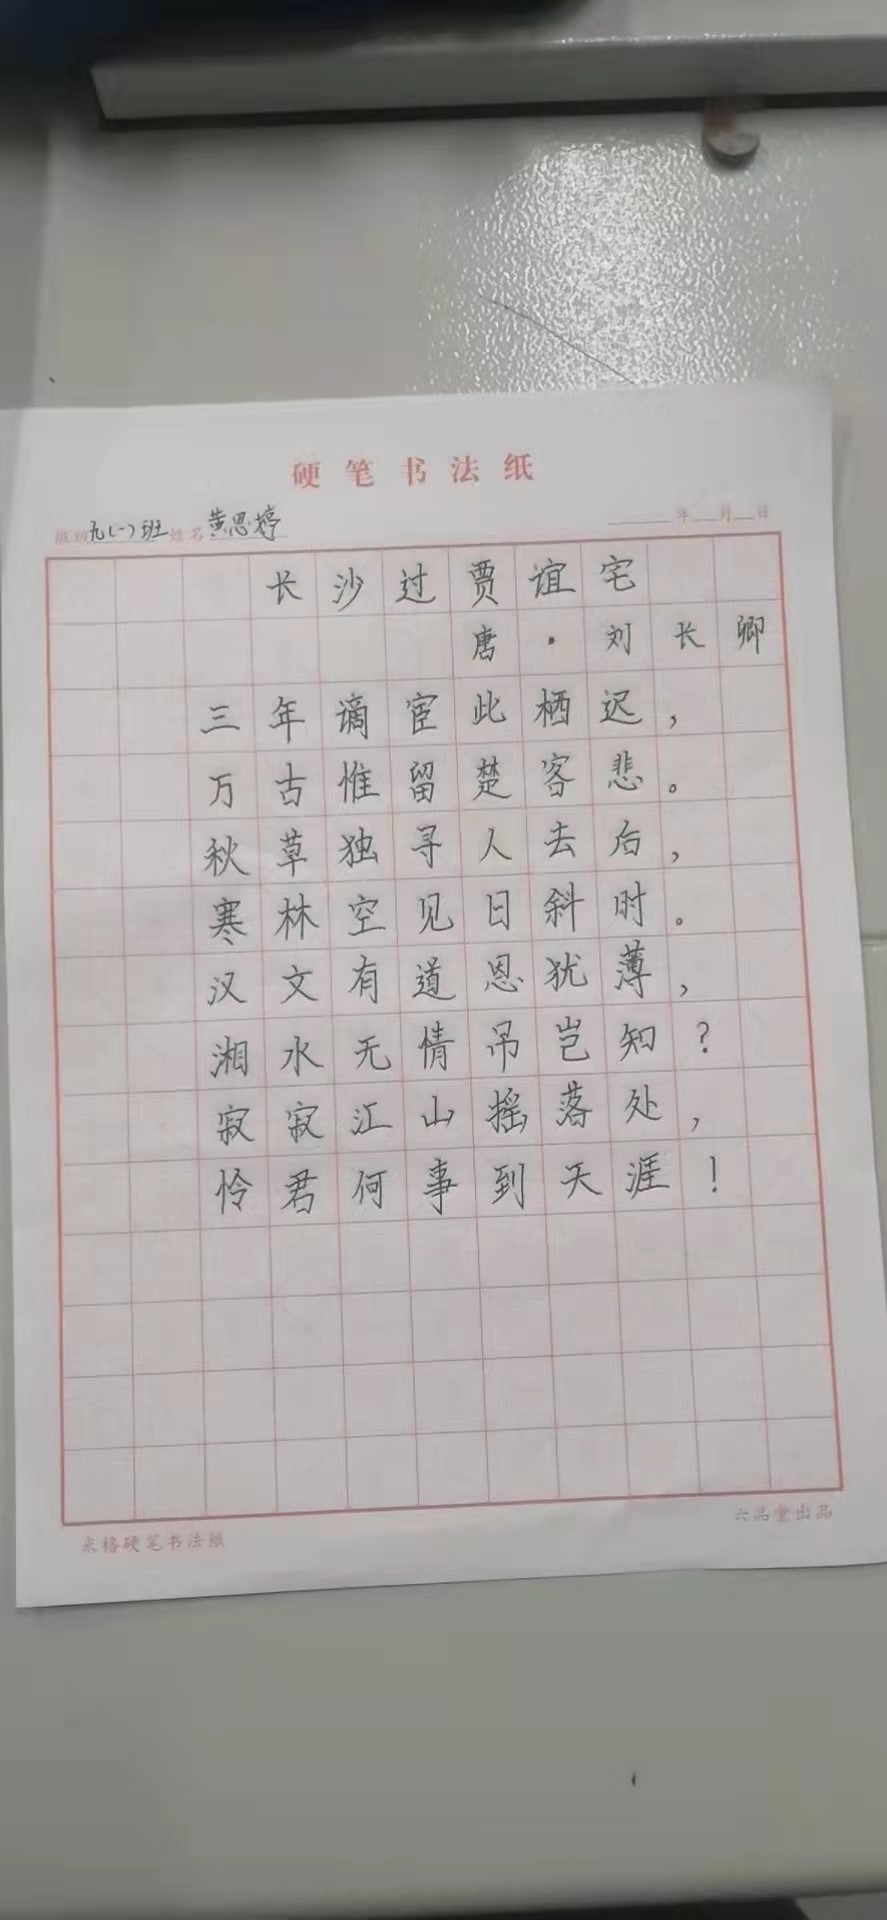 硬笔书法纸
班别九(一)班姓名黄思婷 年 月 日
长沙过贾谊宅
唐·刘长卿
三年谪宦此栖迟，
万古惟留楚客悲。
秋草独寻人去后，
寒林空见日斜时。
汉文有道恩犹薄，
湘水无情吊岂知？
寂寂江山摇落处，
怜君何事到天涯！
米格硬笔书法纸 六品堂出品